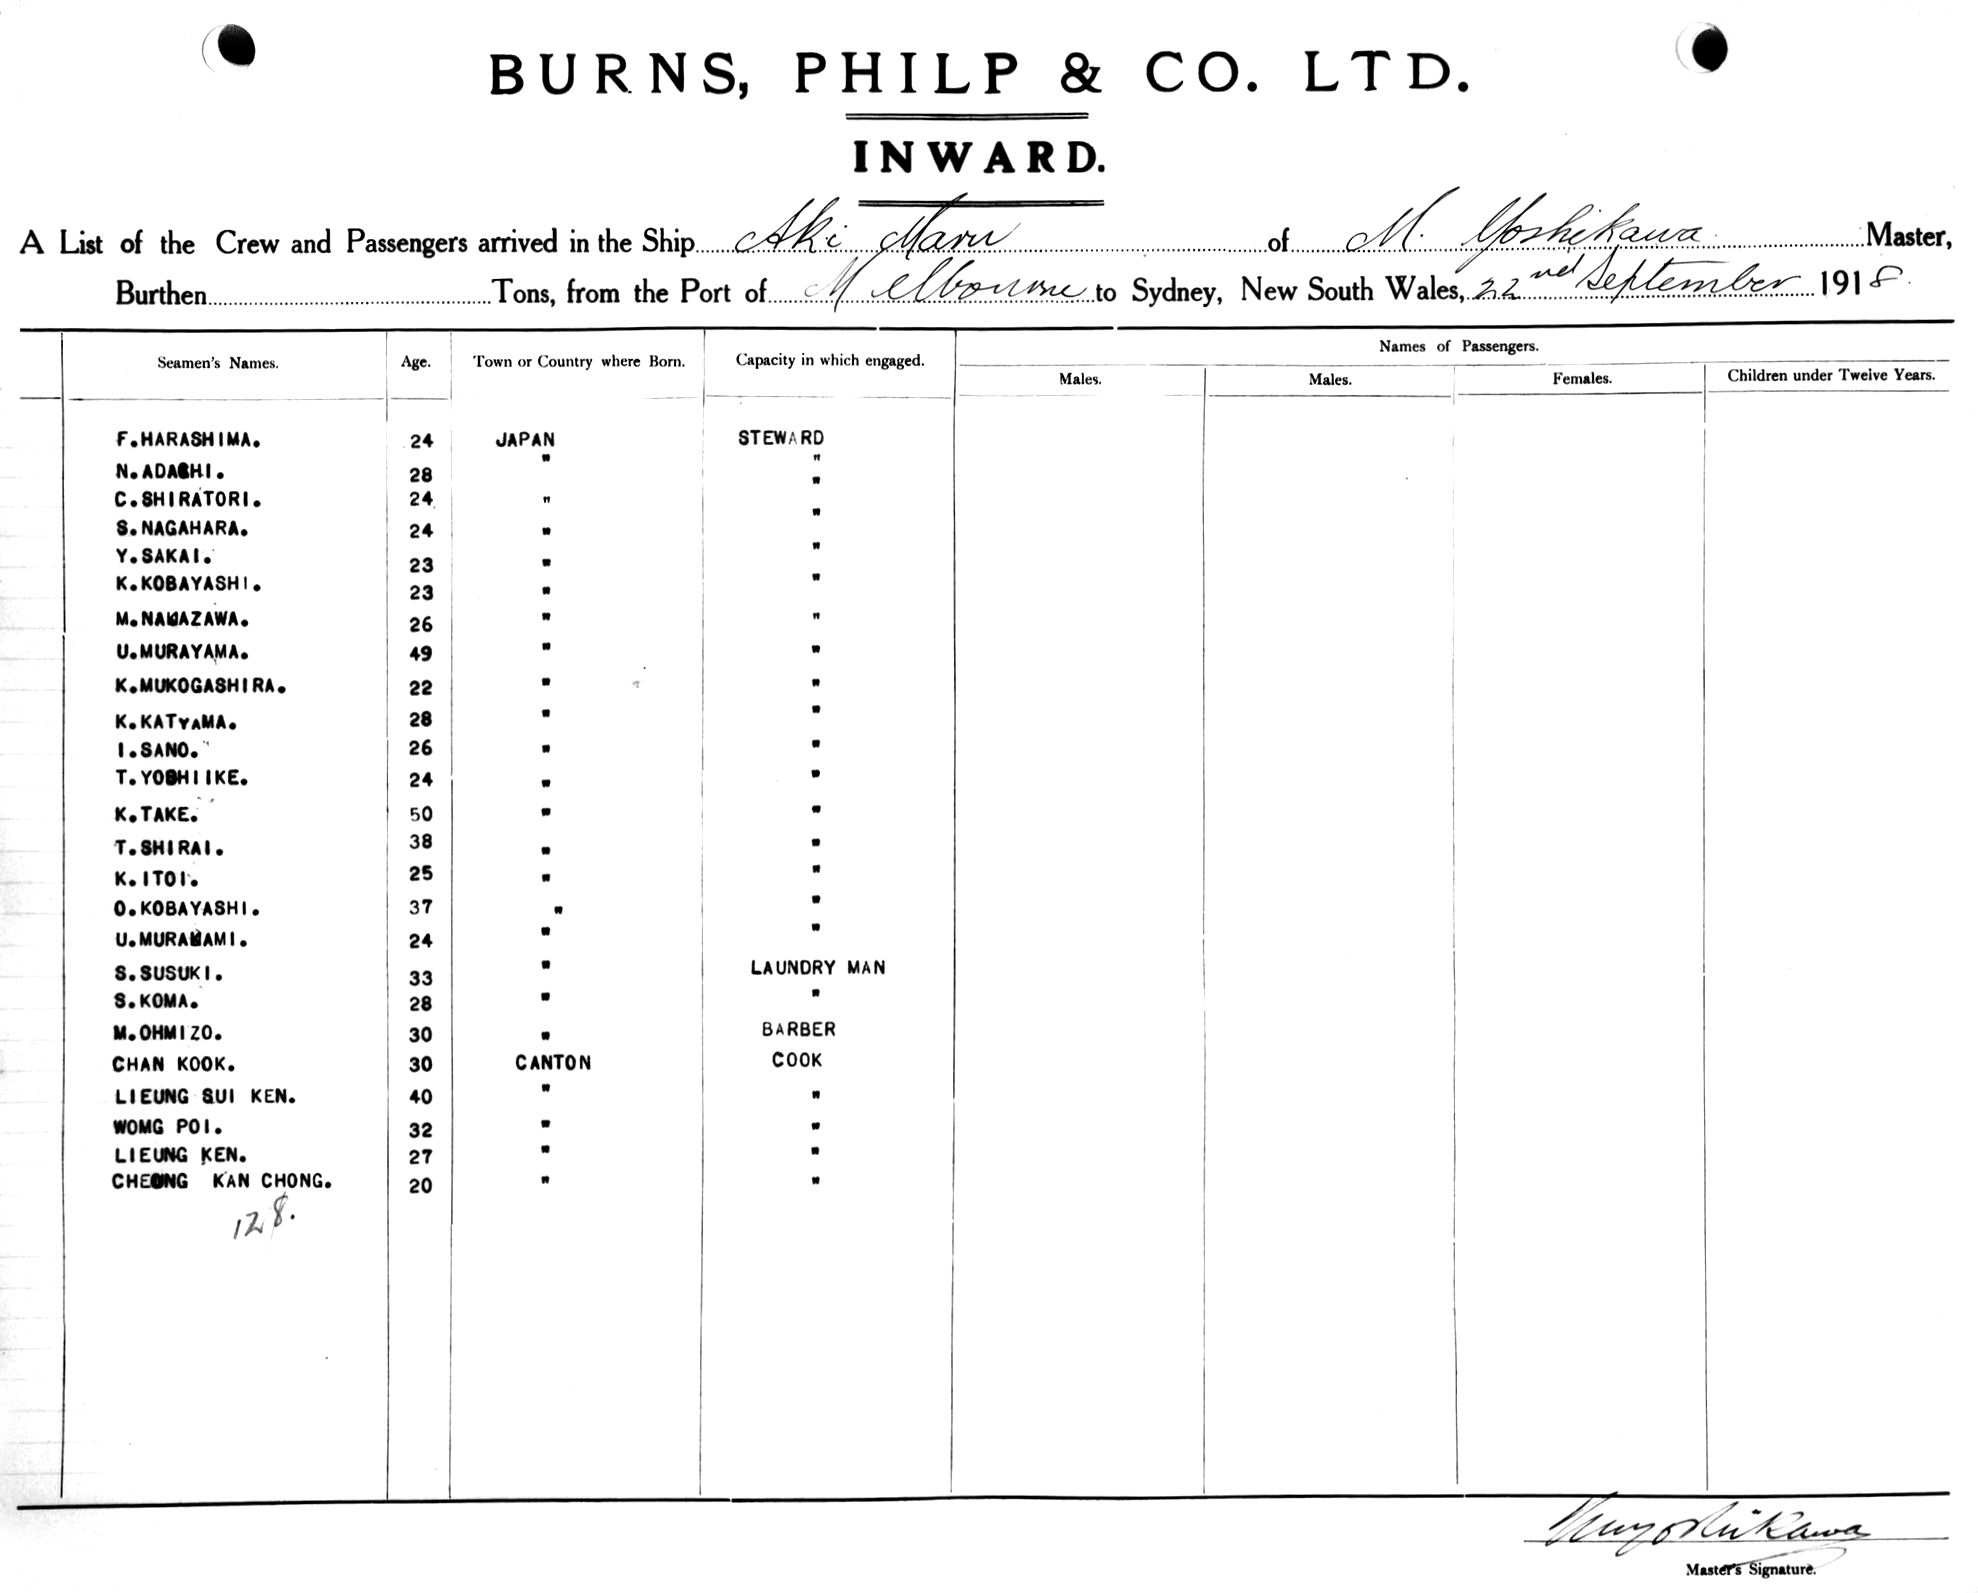 BURNS, PHILP & CO. LTD.
INWARD.
A List of the Crew and Passengers arrived in the Ship Aki Maru of M. Yoshikawa Master,
Burthen Tons, from the Port of Melbourne to Sydney, New South Wales, 22nd September 1918.
Seamen's Names. Age. Town or Country where Born. Capacity in which engaged. Names of Passengers.
Males. Males. Females. Children under Twelve Years.
F.HARASHIMA. 24 JAPAN STEWARD
N.ADACHI. 28 " "
C.SHIRATORI. 24 " "
S.NAGAHARA. 24 " "
Y.SAKAI. 23 " "
K.KOBAYASHI. 23 " "
M.NAWAZAWA. 26 " "
U.MURAYAMA. 49 " "
K.MUKOGASHIRA. 22 " "
K.KATYAMA. 28 " "
I.SANO. 26 " "
T.YOSHIIKE. 24 " "
K.TAKE. 50 " "
T.SHIRAI. 38 " "
K.ITOI. 25 " "
O.KOBAYASHI. 37 " "
U.MURAKAMI. 24 " "
S.SUSUKI. 33 " LAUNDRY MAN
S.KOMA. 28 " "
M.OHMIZO. 30 " BARBER
CHAN KOOK. 30 CANTON COOK
LIEUNG SUI KEN. 40 " "
WOMG POI. 32 " "
LIEUNG KEN. 27 " "
CHEONG KAN CHONG. 20 " "
128.
Master's Signature.